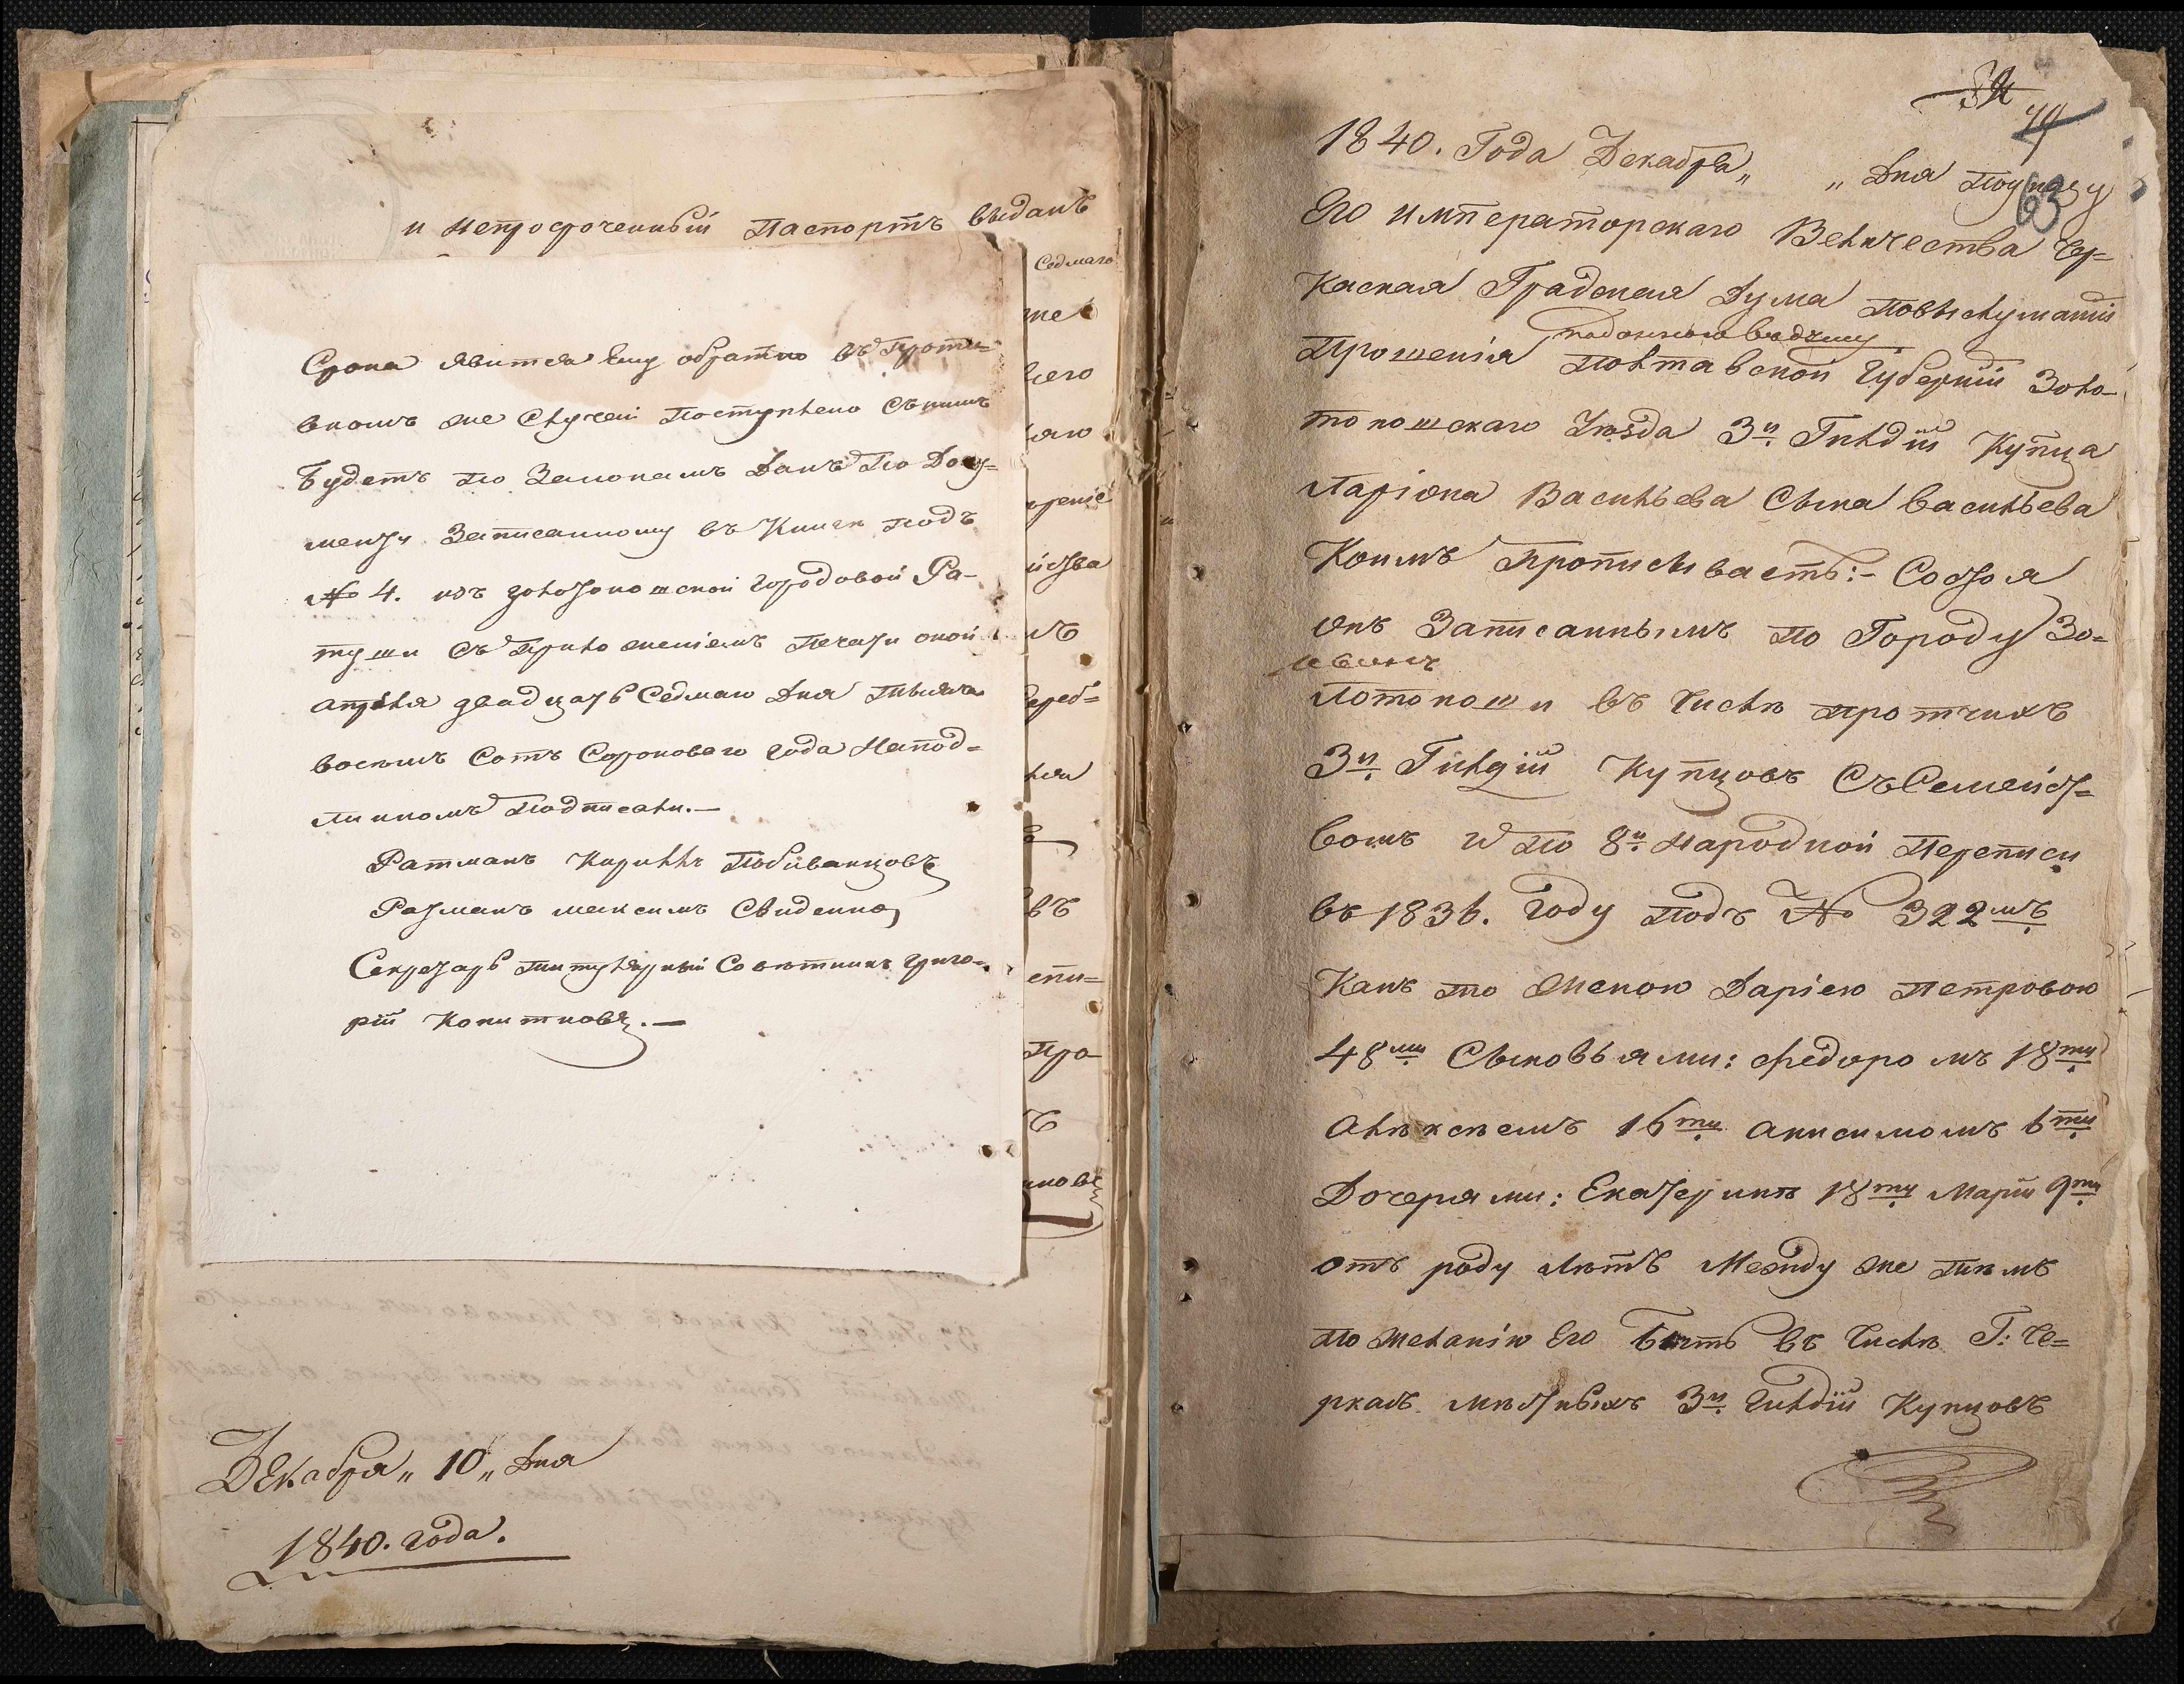 и непросроченный Паспортъ выданъ
Седмаго
Срока явится Ему обратно въ Проти-
вномъ же Случаи Поступлено Снимъ
Будетъ по Законамъ Данъ По Доку-
менту Записанному въ Книги подъ
№ 4. изъ Золотоношской Городовой Ра-
туши Съ Приложениемъ Печати оной
апреля двадцать Седмаго Дня тысяча
восемъ Сотъ Сороковаго года Напод-
линномъ Подписали.—
Ратманъ Кириллъ Побиванцовъ
Ратманъ максимъ Свиденко
Секретарь титулярный Советникъ Григо-
рій Копитковъ.—
Декабря „ 10 „ Дня
1840. года.
74
63
1840. Года Декабря „ „ Дня Поуказу
Его Императорскаго Величества Чер-
каская Градская Дума Повыслушаніи
Прошенія Полтавской Губерніи Золо-
тоношскаго Уѣзда 3й Гилдіи Купца
Ларіона Васильева Сына Васильева
Коимъ Прописываетъ:- Состоя
онъ Записаннымъ по Городу Зо-
лотоноши въ Числѣ протчихъ
3й Гилдіи Купцовъ Съ Семейст-
вомъ и По 8й Народной Переписи
въ 1836. Году Подъ № 322мъ
Какъ то Женою Даріею Петровою
48ми Сыновьями: Федоромъ 18ти
Алѣксѣемъ 16ти Анисимомъ 6ти
Дочерями: Екатеринѣ 18ти Маріи 9ти
отъ роду лѣтъ Между же тѣмъ
По желанію Его Быть въ Числѣ Г: Че-
ркасъ мѣстныхъ 3й Гилдіи Купцовъ